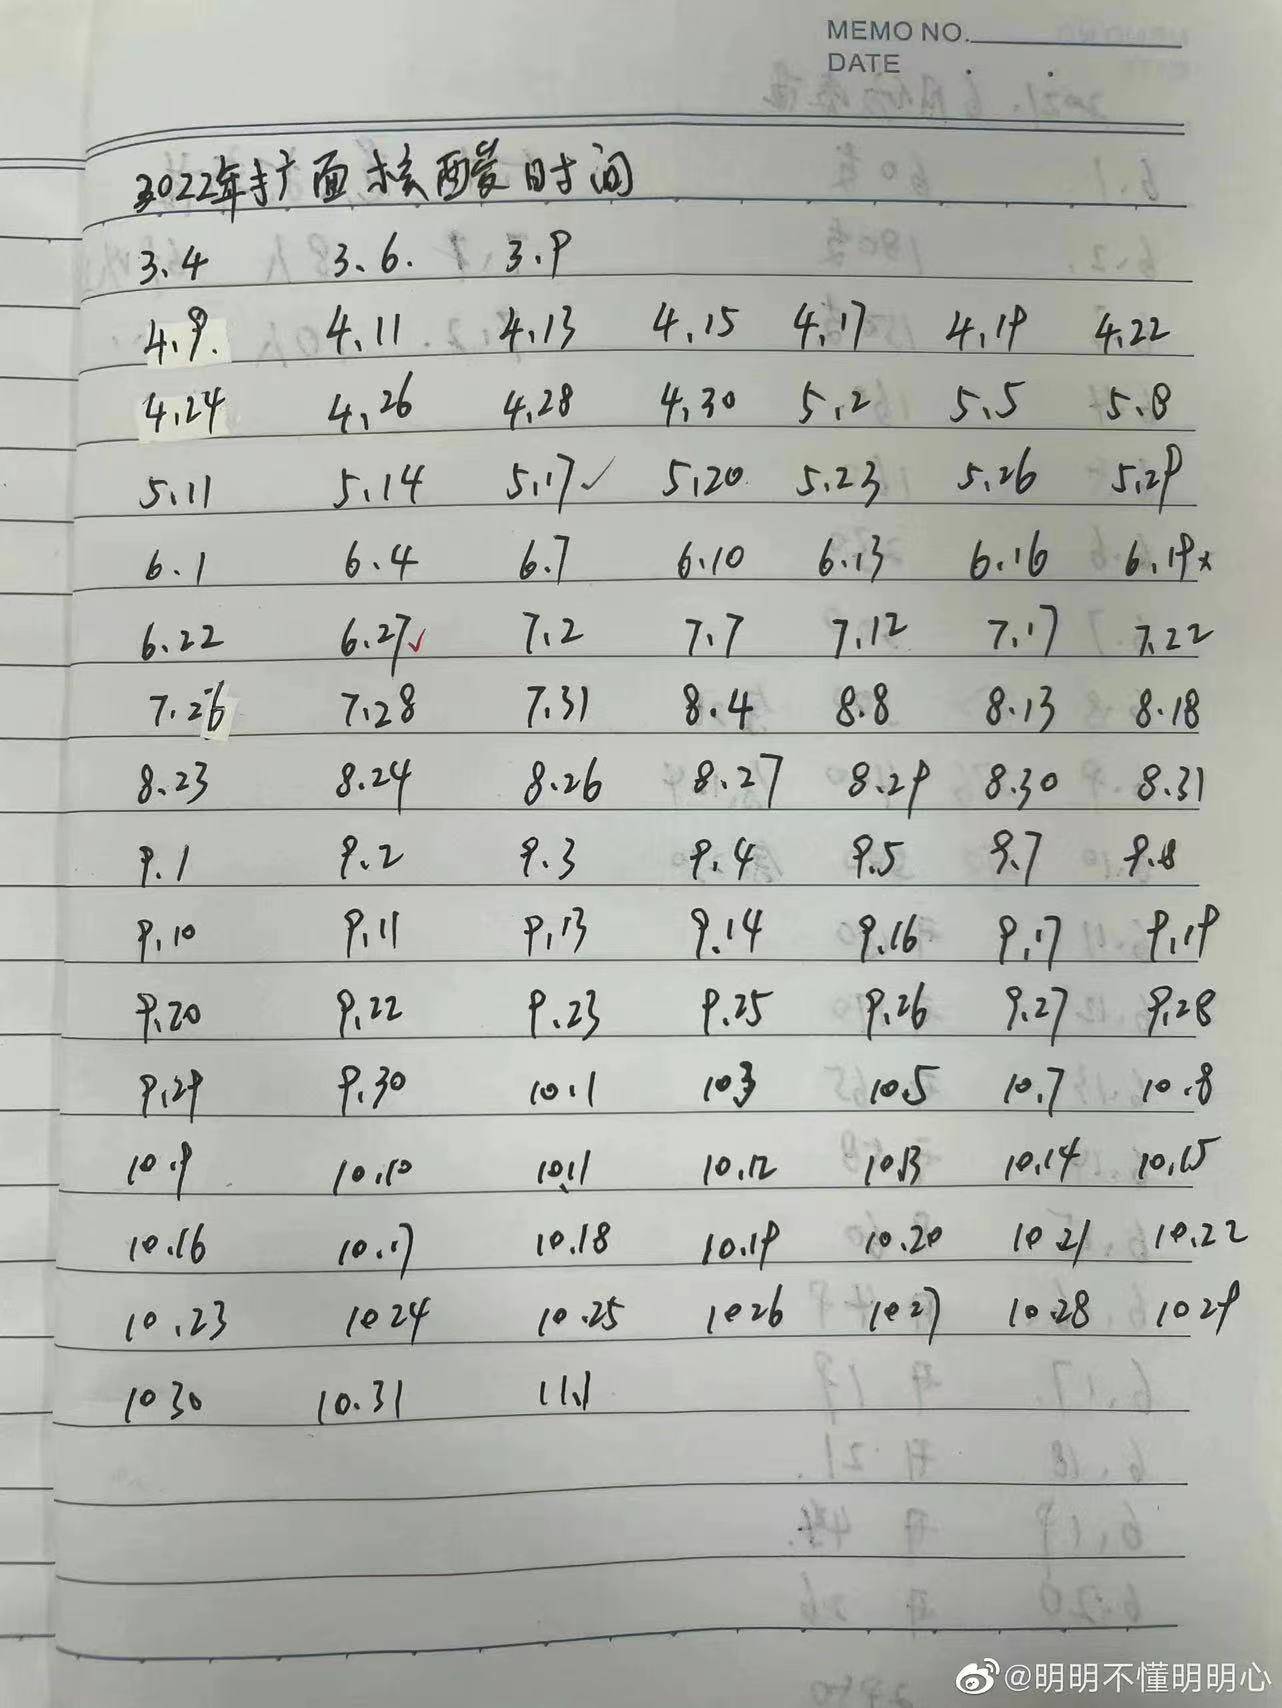 MEMO NO.
DATE . .
2022年扩面核酸时间
3.4 3.6. 3.9
4.9. 4.11 4.13 4.15 4.17 4.19 4.22
4.24 4.26 4.28 4.30 5.2 5.5 5.8
5.11 5.14 5.17✓ 5.20 5.23 5.26 5.29
6.1 6.4 6.7 6.10 6.13 6.16 6.19×
6.22 6.27✓ 7.2 7.7 7.12 7.17 7.22
7.26 7.28 7.31 8.4 8.8 8.13 8.18
8.23 8.24 8.26 8.27 8.29 8.30 8.31
9.1 9.2 9.3 9.4 9.5 9.7 9.8
9.10 9.11 9.13 9.14 9.16 9.17 9.19
9.20 9.22 9.23 9.25 9.26 9.27 9.28
9.29 9.30 10.1 10.3 10.5 10.7 10.8
10.9 10.10 10.11 10.12 10.13 10.14 10.15
10.16 10.17 10.18 10.19 10.20 10.21 10.22
10.23 10 24 10.25 10 26 10 27 10.28 10 29
10 30 10.31 11.1
@明明不懂明明心